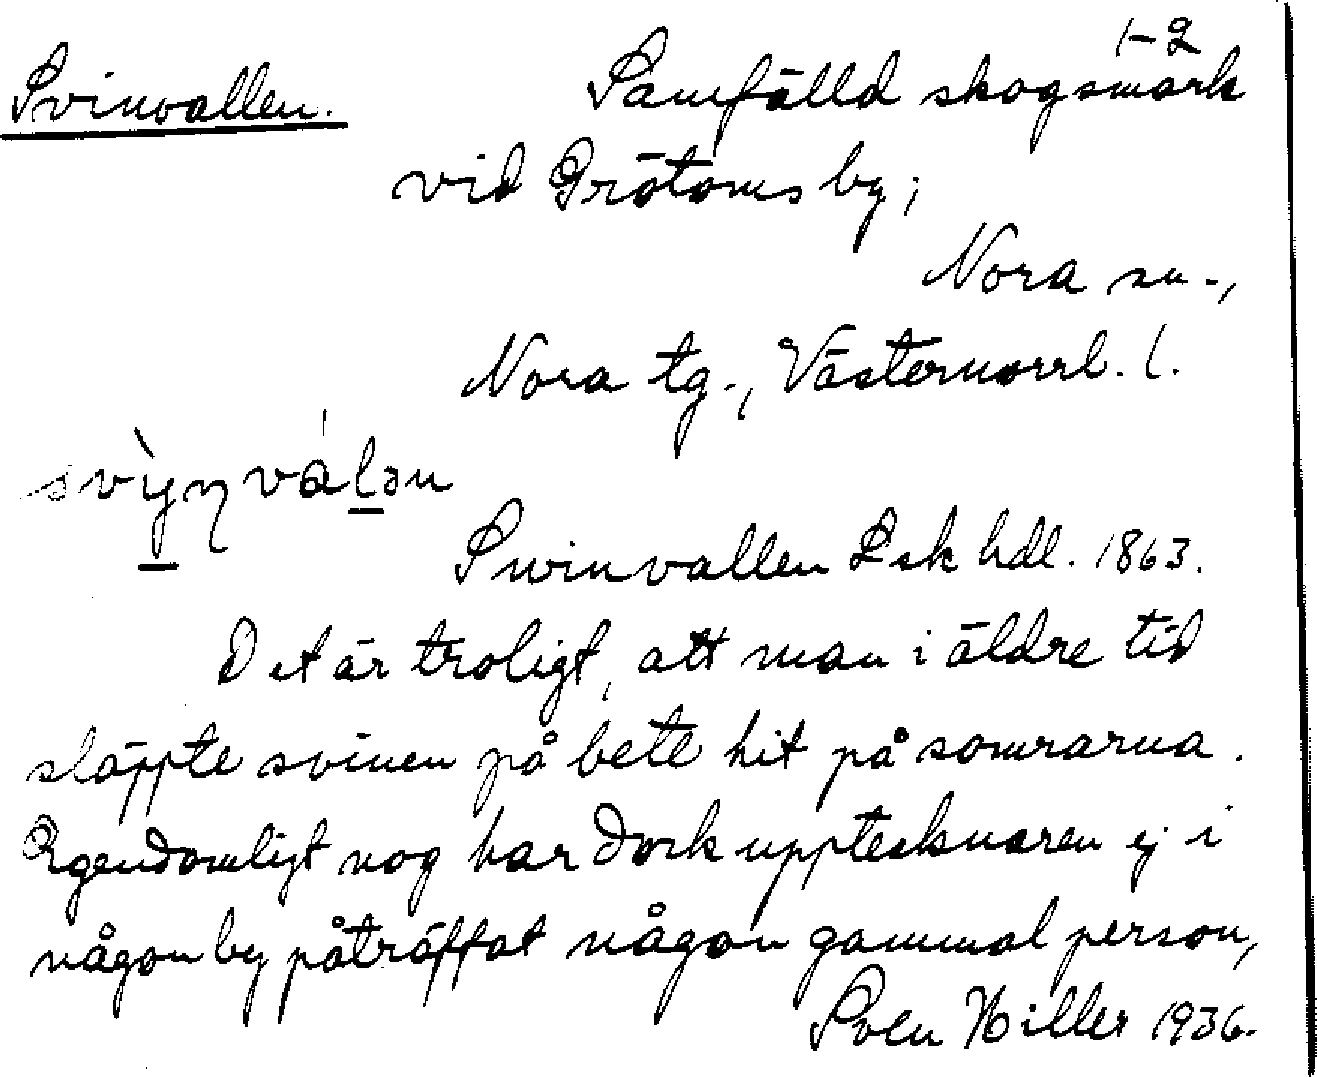 1-2
Svinvallen. Samfälld skogsmark
vid Grötoms by;
Nora sn.,
Nora tg., Västernorrl. l.
svỳŋválən
Swinvallen Lsk hdl. 1863.
Det är troligt, att man i äldre tid
släppte svinen på bete hit på somrarna.
Egendomligt nog har dock upptecknaren ej i
någon by påträffat någon gammal person,
Sven Hiller 1936.